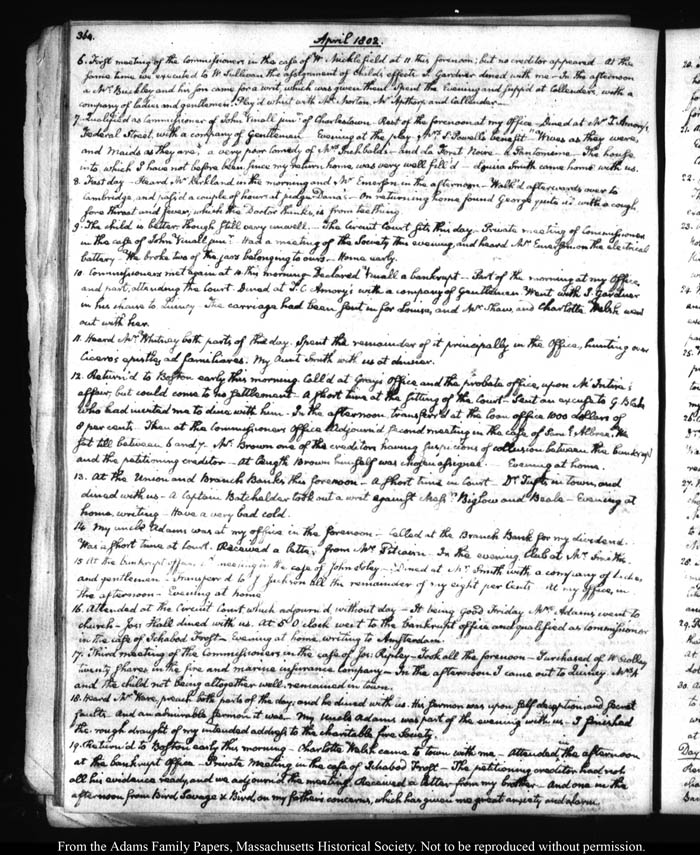 364.
April 1802.
6. First meeting of the Commissioners in the case of W. Nicklefield at 11 this forenoon; but no creditor appeared. At the
same time we executed to W. Sullivan the assignment of Child's effects. S. Gardner dined with me - In the afternoon
a Mr. Buckley and his son came for a writ, which was given them. Spent the Evening and supp'd at Callender's, with a
company of ladies and gentlemen. Play'd whist with Mrs. Morton, Mr. Apthorp, and Callender.
7. Qualified as Commissioner of John junr. of Charlestown. Rest of the forenoon at my Office. Dined at Mr. T. Amory's,
Federal Street, with a company of Gentlemen. Evening at the play, Mrs. S. Powell's benefit "Wives as they were,
and Maids as they are", a very poor comedy of Mrs. Inchbald's - and La Foret Noire, a Pantomime - The house
into which I have not before been since my return home, was very well fill'd - Louisa Smith came home with us.
8. Fast day - Heard Mr. Kirkland in the morning and Mr. Emerson in the afternoon - Walk'd afterwards over to
Cambridge, and pass'd a couple of hours at judge Dana's - On returning home found George quite ill with a cough,
sore throat and fever, which the Doctor thinks, is from teething.
9. The child is better though still very unwell. - The Circuit Court sits this day. Private meeting of Commissioners
in the case of John junr. Had a meeting of the Society this evening, and heard Mr. on the electrical
battery - We broke two of the jars belonging to ours - Home early.
10. Commissioners met again at 10 this morning - Declared a bankrupt - Part of the morning at my Office,
and part, attending the Court. Dined at T. C. Amory's with a company of Gentlemen. Went with S. Gardner
in his chaise to Quincy. The carriage had been sent in for Louisa, and Mrs. Shaw, and Charlotte Welsh went
out with her.
11. Heard Mr. Whitney both parts of this day. Spent the remainder of it principally in the Office, hunting over
Cicero's epistles, ad familiares. My Aunt Smith with us at dinner.
12. Return'd to Boston early this morning. Call'd at Gray's Office and the probate office, upon Mc Intire's
affair; but could come to no settlement - A short time at the sitting of the Court - Sent an excuse to G. Blake
who had invited me to dine with him - In the afternoon transfer'd at the Loan office 1000 dollars of
8 per cents. Then at the Commissioners Office. Adjourn'd second meeting in the case of Saml. Albree. We
sat till between 6 and 7. Mr. Brown one of the creditors having suspicions of collusion between the bankrupt
and the petitioning creditor - At length Brown himself was chosen assignee. - Evening at home.
13. At the Union and Branch Banks this forenoon - A short time in Court. Dr. Tufts in town, and
dined with us - A Captain Batchelder took out a writ against Messrs. Biglow and Beale - Evening at
home, writing - Have a very bad cold.
14. My uncle Adams was at my office in the forenoon - Called at the Branch Bank for my dividend.
Was a short time at Court. Received a letter from Mr. Pitcairn. In the evening, Club at Mr. Smith's.
15. At the bankrupt office meeting in the case of John Osley - Dined at Mr. Smith's with a company of ladies
and gentlemen. Transfer'd to J. Jackson all the remainder of my eight per Cents. At my Office, in
the afternoon - Evening at home
16. Attended at the Circuit Court which adjourn'd without day - It being Good Friday, Mrs. Adams went to
church - Jos: Hall dined with us. At 5 O'clock went to the bankrupt office and qualified as Commissioner
in the case of Ichabod Frost - Evening at home, writing to Amsterdam.
17. Third meeting of the Commissioners in the case of Jos: Ripley - Took all the forenoon - Purchased of W. Scollay
twenty shares in the fire and marine insurance company - In the afternoon I came out to Quincy. Mrs. A
and the child not being altogether well, remained in town.
18. Heard Mr. Ware, preach both parts of the day; and he dined with us. His sermon was upon self deception, and secret
faults. And an admirable sermon it was. My Uncle Adams was part of the evening with us. I finished
the rough draught of my intended address to the charitable fire Society.
19. Return'd to Boston early this morning - Charlotte Welsh came to town with me - Attended, in the afternoon
at the bankrupt office - Private Meeting in the case of Ichabod Frost - The petitioning creditor had not
all his evidence ready, and we adjourn'd the meeting. Received a letter from my brother - And one in the
afternoon from Bird Savage & Bird, on my father's concerns, which has given me great anxiety and alarm.
From the Adams Family Papers, Massachusetts Historical Society. Not to be reproduced without permission.